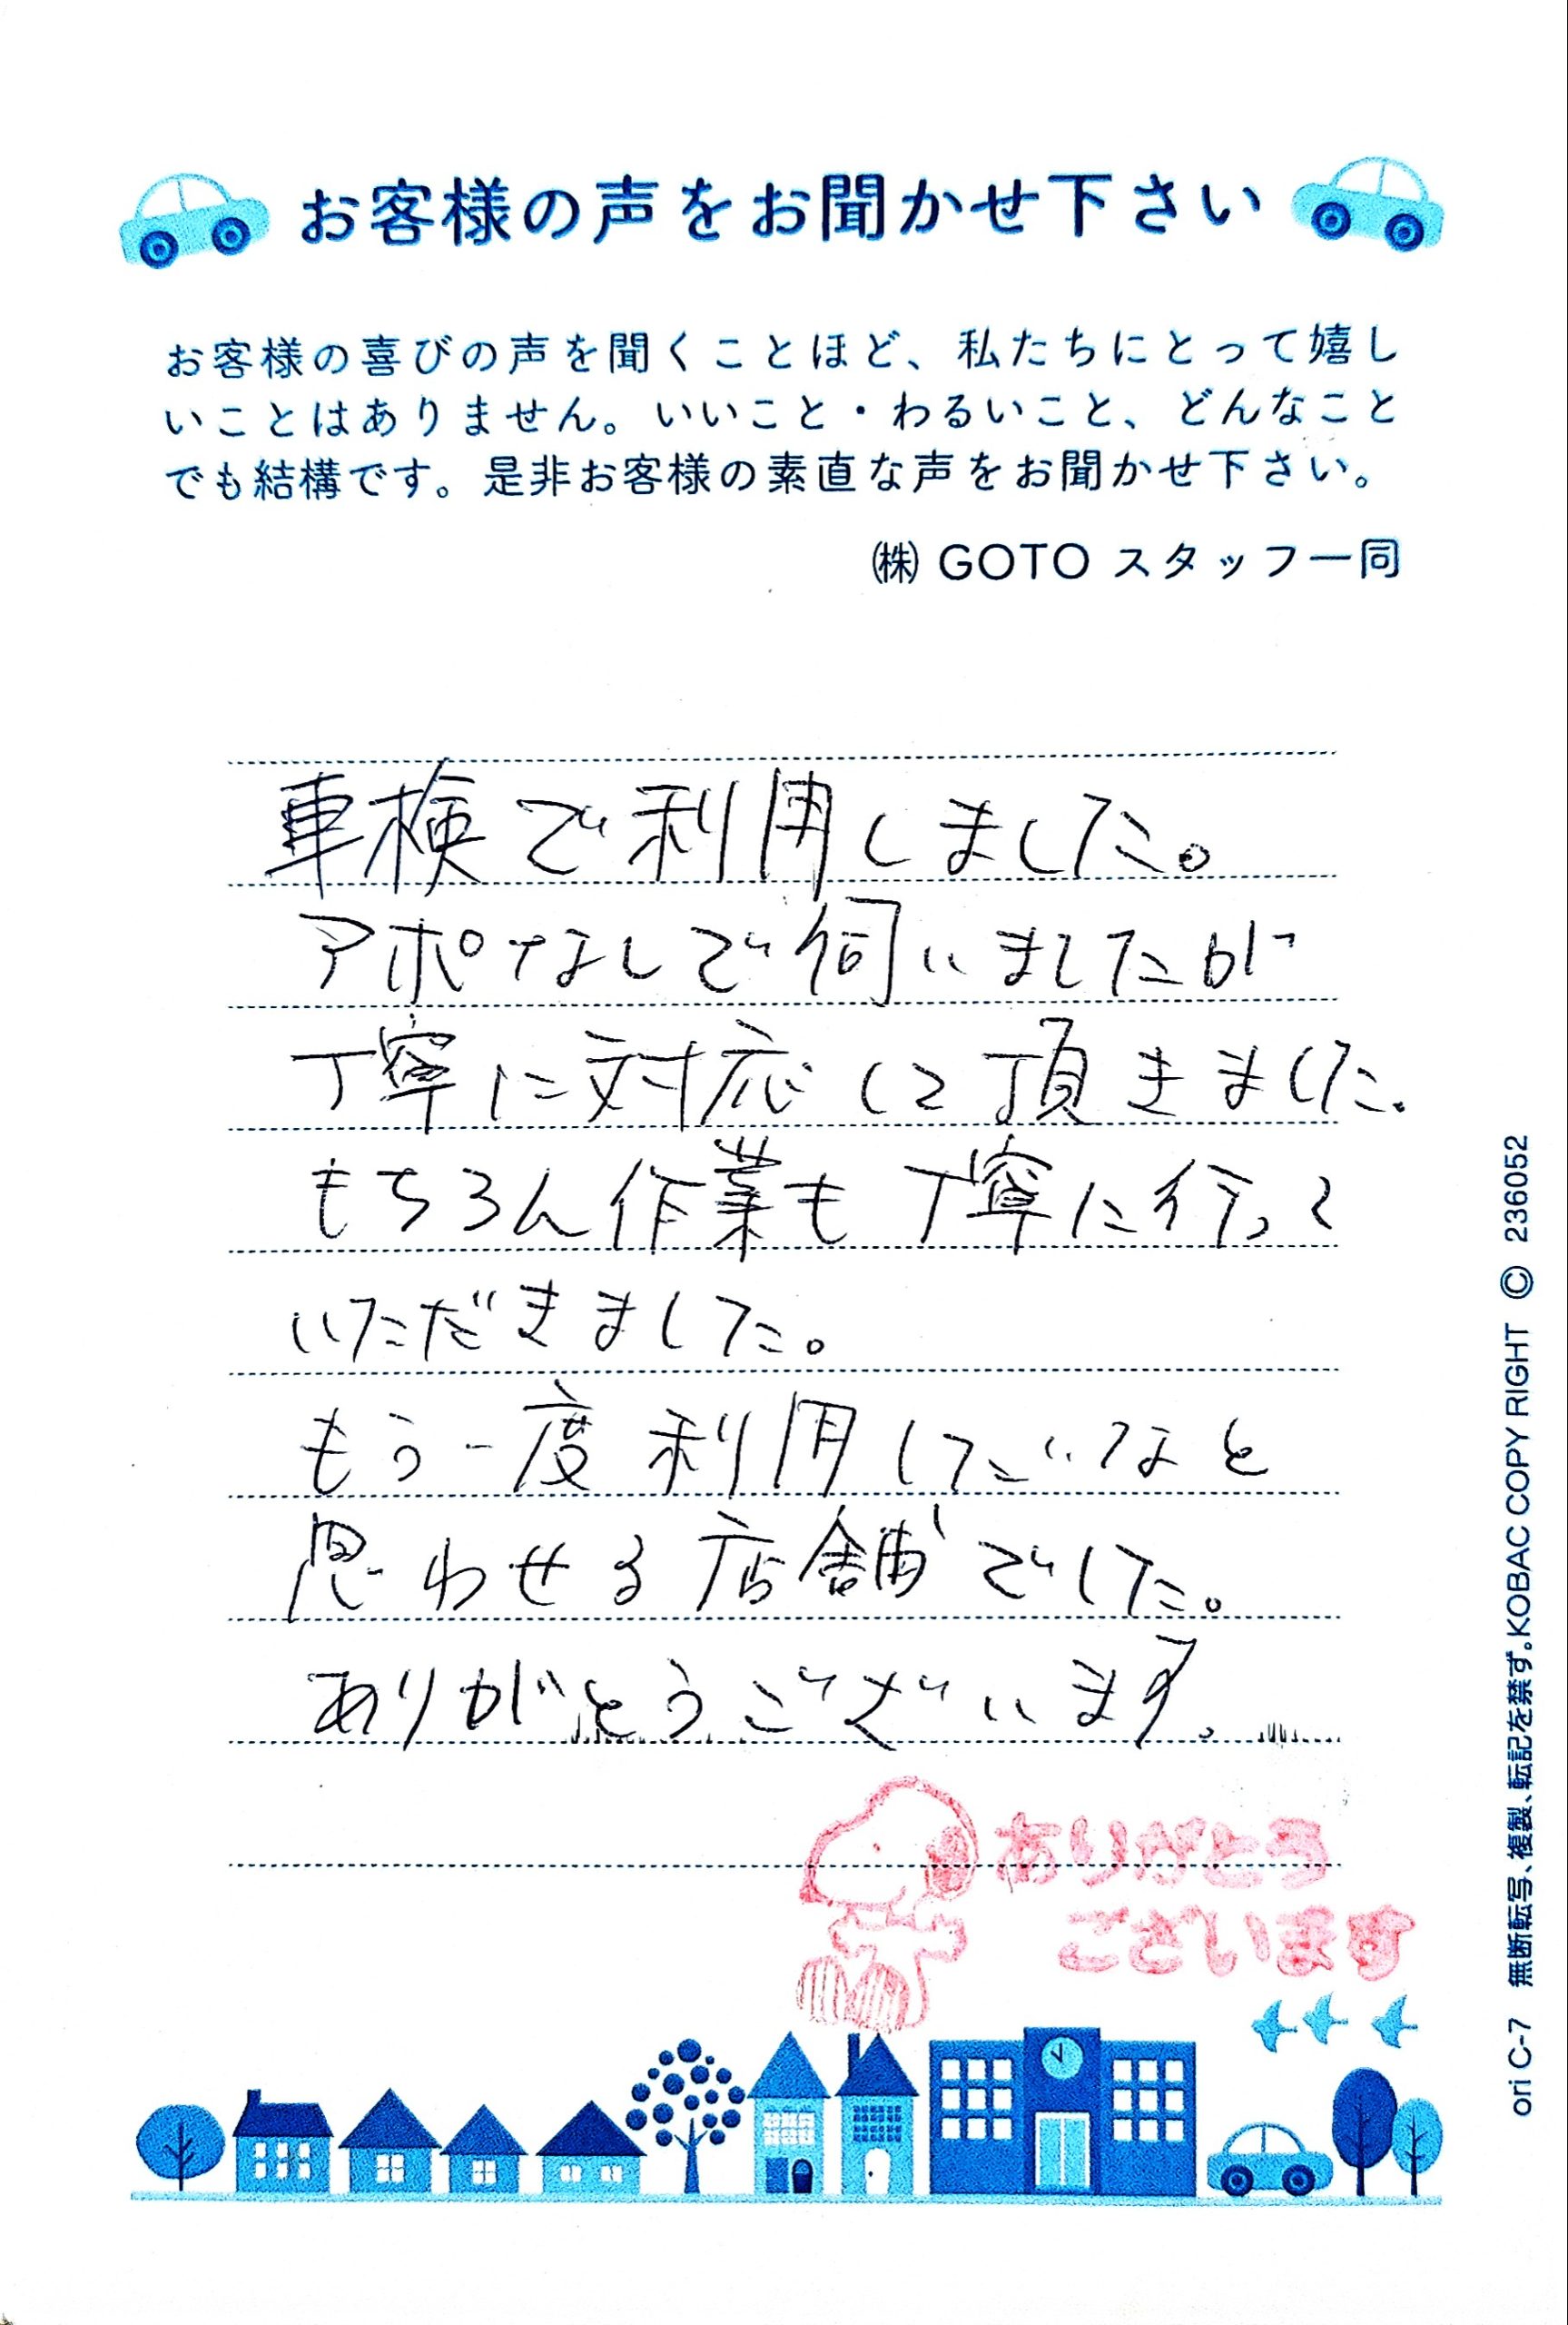 お客様の声をお聞かせ下さい
お客様の喜びの声を聞くことほど、私たちにとって嬉し
いことはありません。いいこと・わるいこと、どんなこと
でも結構です。是非お客様の素直な声をお聞かせ下さい。
㈱ GOTO スタッフ一同
車検で利用しました。
アポなしで伺いましたが
丁寧に対応して頂きました。
もちろん作業も丁寧に行って
いただきました。
もう一度利用したいなと
思わせる店舗でした。
ありがとうございます。
ありがとう
ございます
ori C-7 無断転写、複製、転記を禁ず。KOBAC COPY RIGHT © 236052